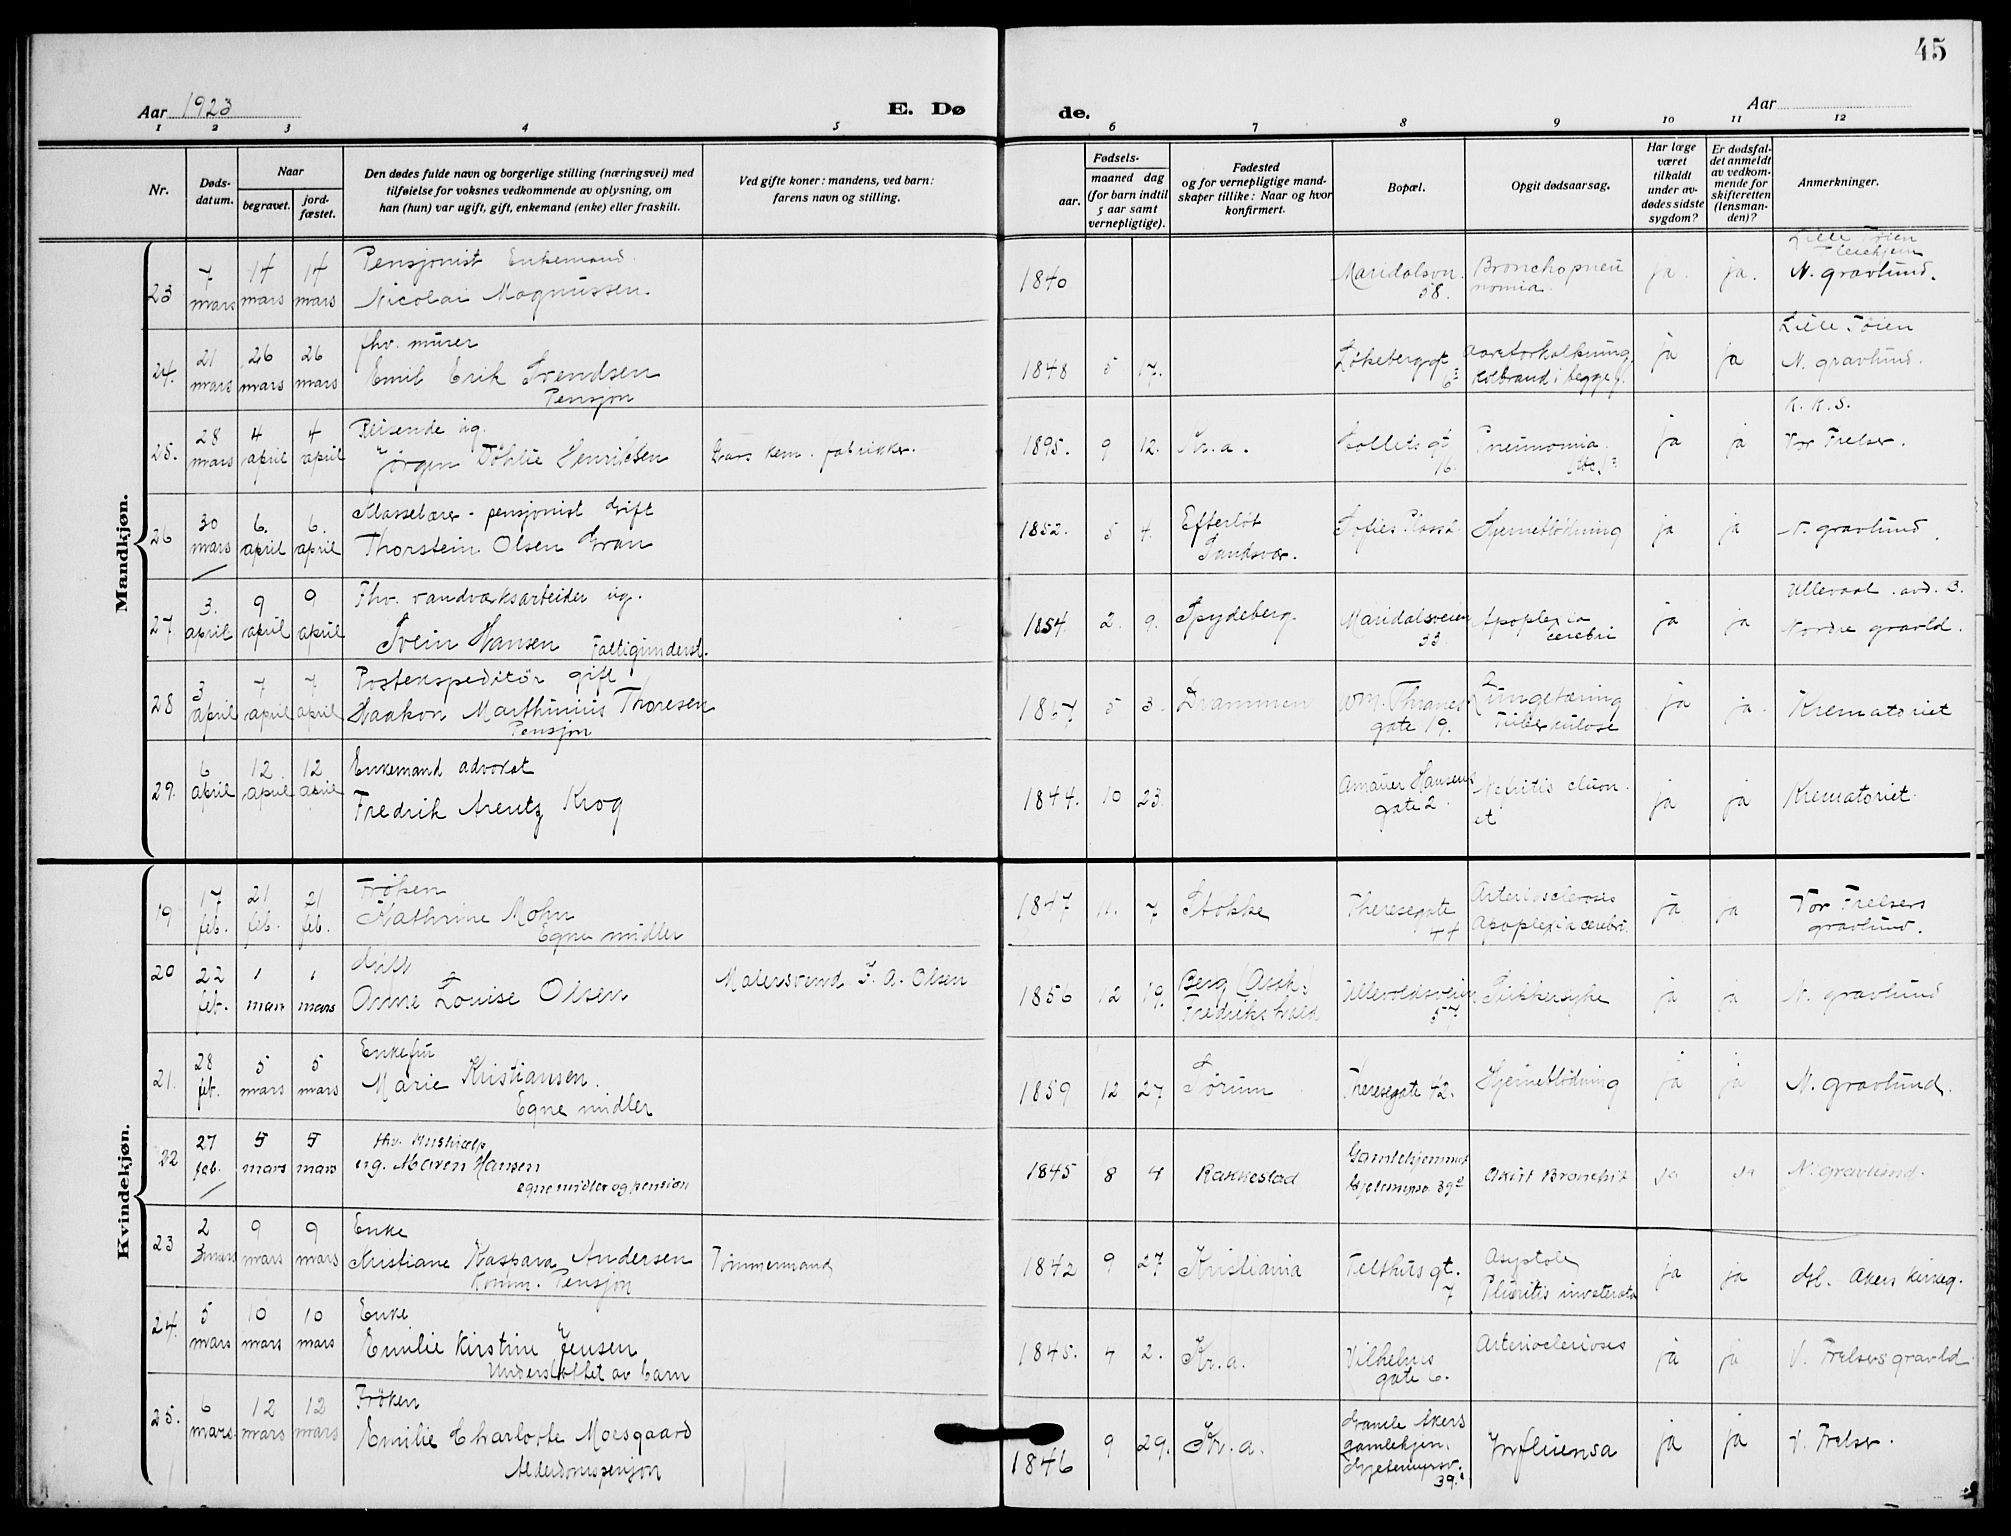 45
Aar 1923
E. Dø
de.
Aar
1 2 3 4 5 6 7 8 9 10 11 12
Nr.
Døds-
datum.
Naar
begravet.
jord-
fæstet.
Den dødes fulde navn og borgerlige stilling (næringsvei) med
tilføielse for voksnes vedkommende av oplysning, om
han (hun) var ugift, gift, enkemand (enke) eller fraskilt.
Ved gifte koner: mandens, ved barn:
farens navn og stilling.
Fødsels-
aar.
maaned dag
(for barn indtil
5 aar samt
vernepligtige).
Fødested
og for vernepligtige mand-
skaper tillike: Naar og hvor
konfirmert.
Bopæl.
Opgit dødsaarsag.
Har læge
været
tilkaldt
under av-
dødes sidste
sygdom?
Er dødsfal-
det anmeldt
av vedkom-
mende for
skifteretten
(lensman-
den)?
Anmerkninger.
Mandkjøn.
23 7 mars 14 mars 14 mars
Pensjonist Enkemand.
Nicolai Magnussen
1840 Maridalsvn. 58. Bronchopneu
nomia. ja. ja.
Lille Tøien
N. gravlund.
24. 21 mars 26 mars 26 mars
fhv. murer
Emil Erik Svendsen
Pensjon
1848 5 17. Løkeberggt. 6 Aareforkalkning
koldbrand i begge f. ja ja
Lille Tøien
N. gravlund.
25. 28 mars 4 april 4 april
Reisende ug.
Jørgen Døhlie Henriksen
kem. fabrikker.
1895. 9 12. Kr.a. Colletts gt. Pneumonia ja ja
K.K.S.
Vor Frelser.
26 30 mars 6. april 6. april
Klasselærer - pensjonist Gift
Thorstein Olsen Gran
1852. 5 4. Efterløt
Sandsvær. Sofies Plass Hjerneblødning ja ja N. gravlund.
27 3. april 9 april 9 april
Fhv. vandværksarbeider ug.
Svein Hansen Fattigunderst.
1854. 2. 9. Spydeberg. Maridalsveien
33. Apoplexia
cerebri ja ja
Ullevaal. avd. B.
Nordre gravld.
28 3 april 7 april 7 april
Postekspeditør gift
Haakon Marthinius Thoresen
Pensjon
1867 5 3. Drammen Wm. Thranes
gate 19. Lungetæring
Tuberkulose ja ja. Krematoriet
29. 6 april 12. april 12 april
Enkemand advokat
Fredrik Arentz Krog
1844. 10 23. Amaier Hansens
gate 2. Nefritis chron.
et ja ja Krematoriet.
Kvindekjøn.
19 17 feb. 21 feb. 21 feb.
Frøken
Kathrine Mohn
Egne midler
1847 11. 7 Stokke Theresegate
44 Arteriosclerosis
Apoplexia cerebri. ja ja Vor Frelsers
gravlund.
20 22 feb. 1 mars 1 mars
Gift
Anne Louise Olsen Malersvend J. A. Olsen
1856 12 19. Berg (Asak)
Fredrikshald Ullevoldsveien
57 Sukkersyke ja ja N. gravlund
21. 28 feb. 5 mars 5 mars
Enkefru
Marie Kristiansen.
Egne midler
1859 12 27 Sørum Theresegate 42. Hjerneblødning ja ja N. gravlund.
22 27 feb. 5 mars 5 mars
fhv. Hushjælp
ug. Maren Hansen
egne midler og pension
1845 8 4 Rakkestad Gamlehjemmet
39 Akut Bronchit ja ja N. gravlund.
23 2 mars 9 mars 9 mars
Enke
Kristiane Kaspara Andersen Tømmermand
Komm. Pensjon
1842 9 27 Kristiania Telthus gt.
7 Asystole
Pleuritis inveterata ja ja Gl. Akers kirkeg.
24. 5 mars 10 mars 10 mars
Enke
Emilie Kirstine Jensen
Understøttet av barn
1845. 4 2. Kr.a. Vilhelms
gate 6. Arterioclerioses ja ja V. Frelsers gravld.
25. 6 mars. 12 mars 12 mars
Frøken
Emilie Charlotte Moesgaard
Alderdomspensjon
1846 9 29. Kr.a. Gamle Akers
gamlehjem.
39. Influensa ja ja V. Frelser.